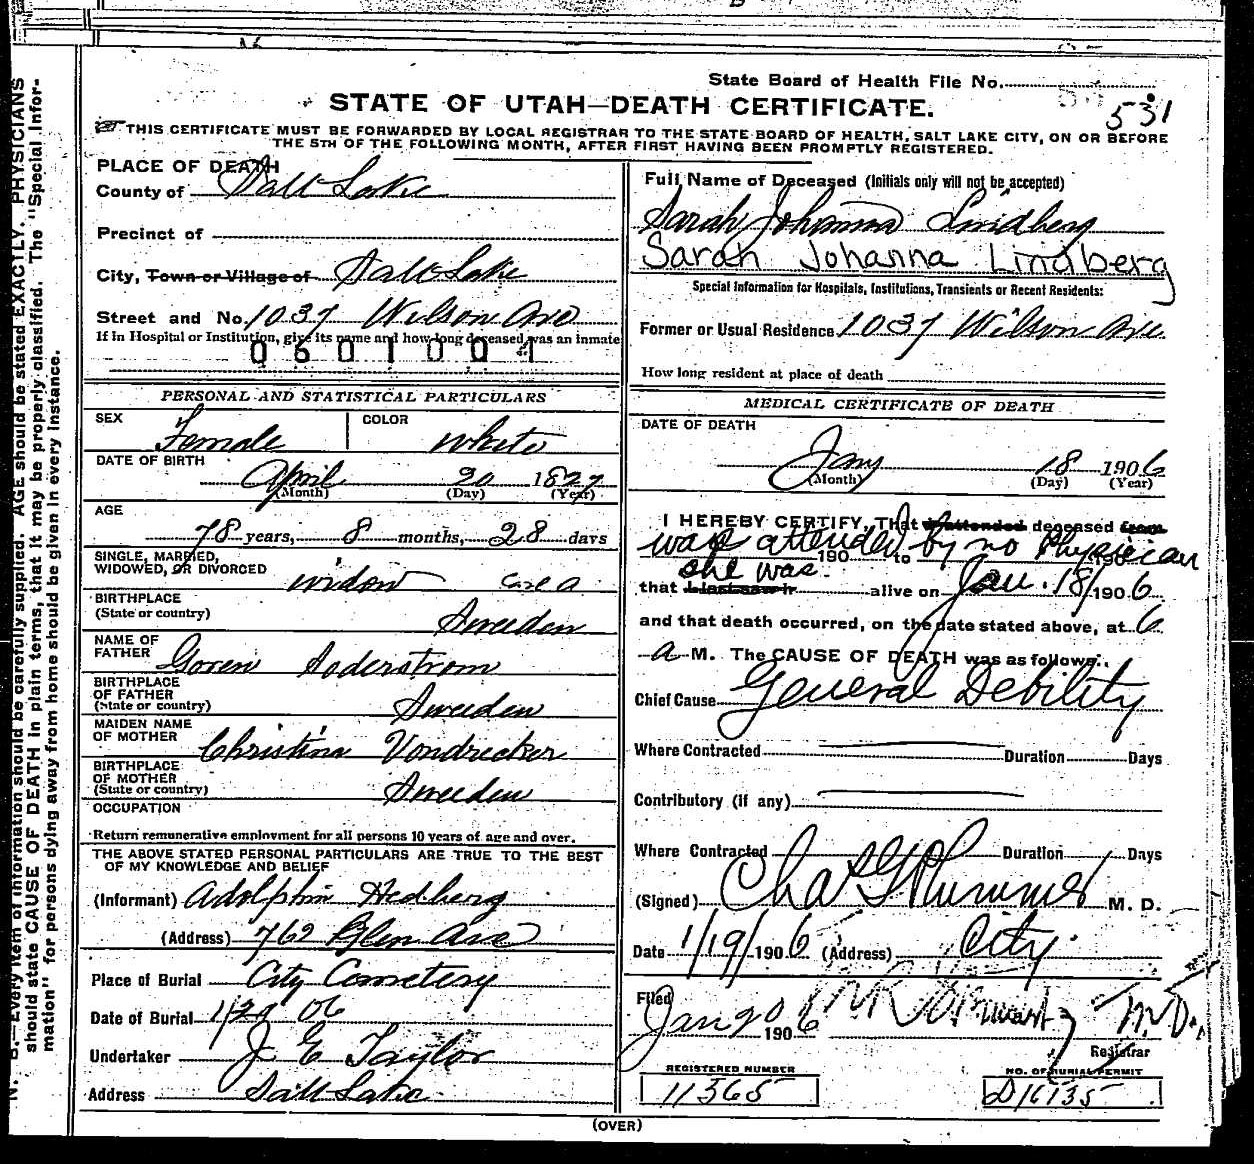 State Board of Health File No.
531
STATE OF UTAH—DEATH CERTIFICATE.
THIS CERTIFICATE MUST BE FORWARDED BY LOCAL REGISTRAR TO THE STATE BOARD OF HEALTH, SALT LAKE CITY, ON OR BEFORE
THE 5TH OF THE FOLLOWING MONTH, AFTER FIRST HAVING BEEN PROMPTLY REGISTERED.
PLACE OF DEATH
County of Salt Lake
Precinct of
City, Town or Village of Salt Lake
Street and No. 1037 Wilson Ave
If in Hospital or Institution, give its name and how long deceased was an inmate
0601004
PERSONAL AND STATISTICAL PARTICULARS
SEX Female COLOR White
DATE OF BIRTH April 20 1827
(Month) (Day) (Year)
AGE
78 years, 8 months, 28 days
SINGLE, MARRIED,
WIDOWED, OR DIVORCED widow
BIRTHPLACE
(State or country) Sweeden
NAME OF
FATHER Goren Soderstrom
BIRTHPLACE
OF FATHER
(State or country) Sweeden
MAIDEN NAME
OF MOTHER Christina Vondrecker
BIRTHPLACE
OF MOTHER
(State or country) Sweeden
OCCUPATION
Return remunerative employment for all persons 10 years of age and over.
THE ABOVE STATED PERSONAL PARTICULARS ARE TRUE TO THE BEST
OF MY KNOWLEDGE AND BELIEF
(Informant) Adolphin Hedberg
(Address) 762 Glen Ave
Place of Burial City Cemetery
Date of Burial 1/20 06
Undertaker J E Taylor
Address Salt Lake
Full Name of Deceased (Initials only will not be accepted)
Sarah Johanna Lindberg
Sarah Johanna Lindberg
Special Information for Hospitals, Institutions, Transients or Recent Residents:
Former or Usual Residence 1037 Wilson Ave.
How long resident at place of death
MEDICAL CERTIFICATE OF DEATH
DATE OF DEATH
Jany 18 1906
(Month) (Day) (Year)
I HEREBY CERTIFY, That I attended deceased from
was attended by no Physician
190 to 190
she was
that I last saw h alive on Jan. 18/ 1906.
and that death occurred, on the date stated above, at 6
a M. The CAUSE OF DEATH was as follows:
Chief Cause General Debility
Where Contracted Duration Days
Contributory (if any)
Where Contracted Duration Days
(Signed) Chas G Plummer M. D.
Date 1/19/ 1906 (Address) City.
Filed
Jan 20 1906 M.D.
Registrar
REGISTERED NUMBER
11365
NO. OF BURIAL PERMIT
D16735
(OVER)
N. B.—Every item of information should be carefully supplied. AGE should be stated EXACTLY. PHYSICIANS
should state CAUSE OF DEATH in plain terms, that it may be properly classified. The "Special Infor-
mation" for persons dying away from home should be given in every instance.